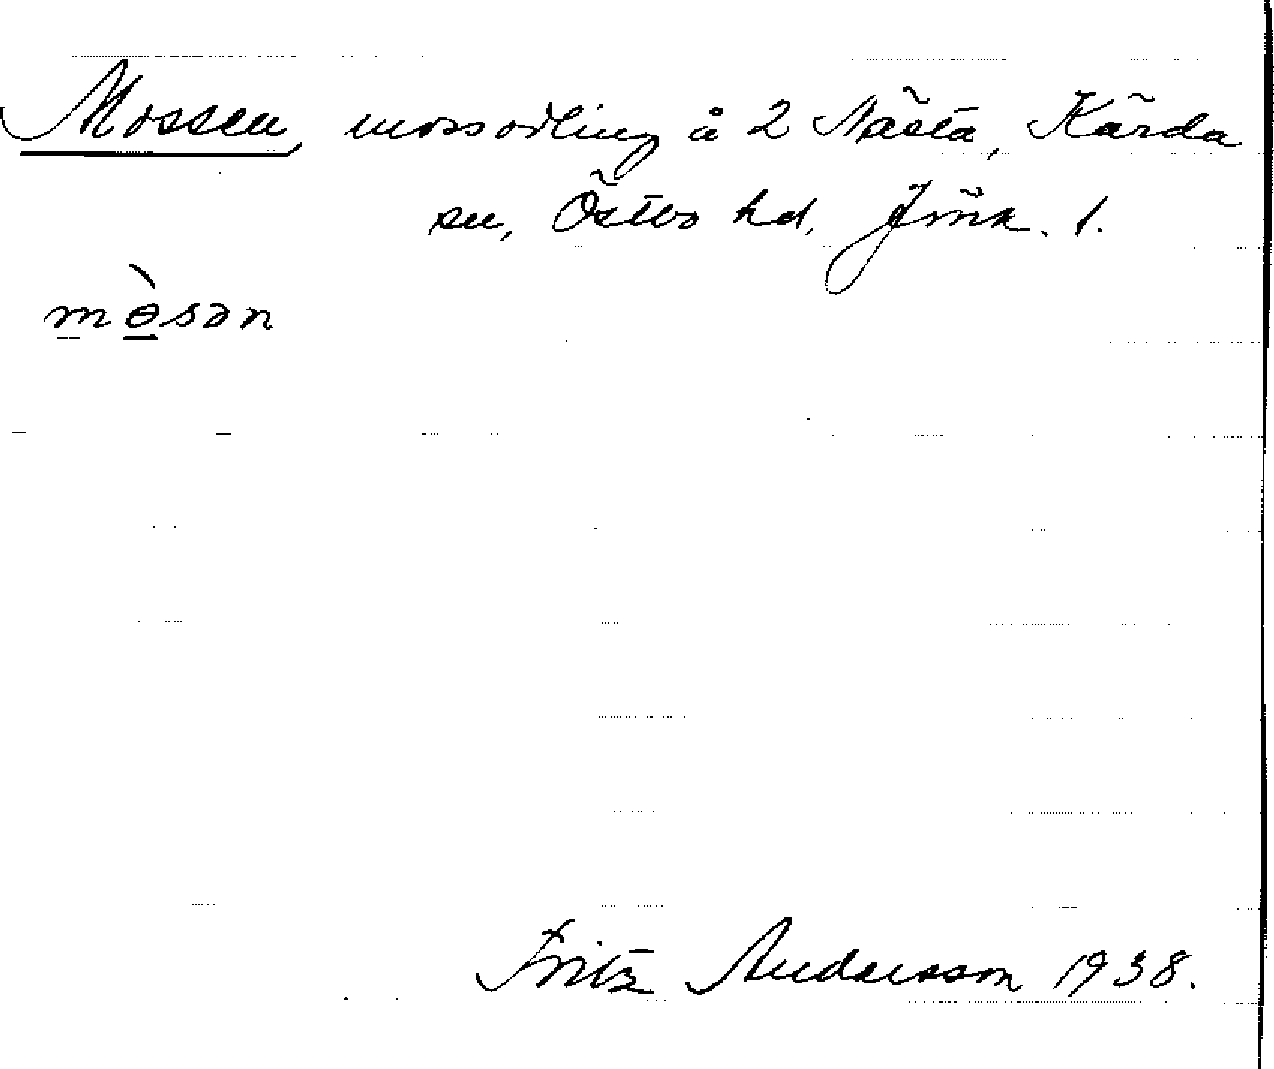 Mossen, mossodling å 2 Nästa, Kärda
sn, Östbo hd, Jönk. l.
mòsən
Fritz Andersson 1938.